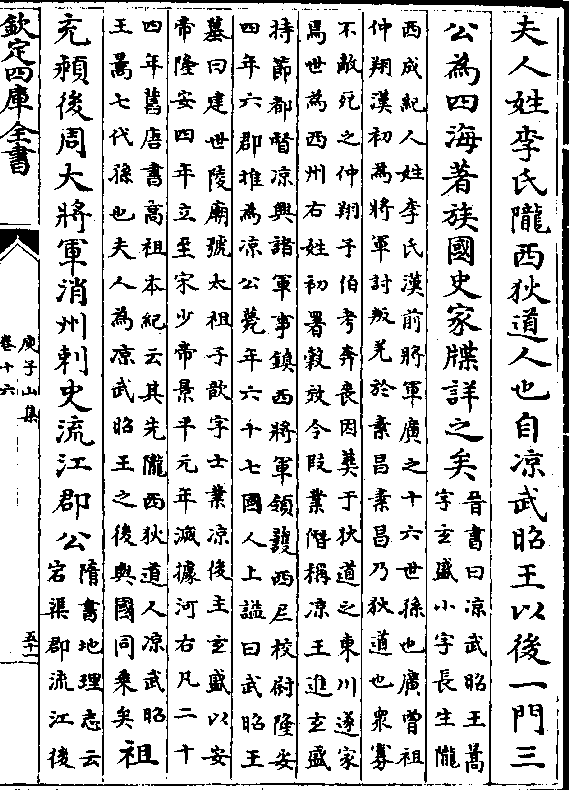 夫人姓李氏隴西狄道人也自凉武昭王以後一門三
公為四海著族國史家牒詳之矣晉書曰凉武昭王暠
字玄盛小字長生隴
西成紀人姓李氏漢前將軍廣之十六世孫也廣曾祖
仲翔漢初為將軍討叛羌於素昌素昌乃狄道也衆寡
不敵死之仲翔子伯考奔喪因葬于狄道之東川遂家
焉世為西州右姓初署榖效令叚業僣稱凉王進玄盛
持節都督凉興諸軍事鎮西將軍領護西尼校尉隆安
四年六郡推為凉公薨年六千七國人上謚曰武昭王
墓曰建世陵廟號太祖子歆字士業凉後主玄盛以安
帝隆安四年立至宋少帝景平元年滅據河右凡二十
四年舊唐書高祖本紀云其先隴西狄道人凉武昭
王暠七代孫也夫人為凉武昭王之後與國同乘矣祖
充頴後周大將軍消州刺史流江郡公隋書地理志云
宕渠郡流江後
欽定四庫全書
庾子山集
卷十六
五十一